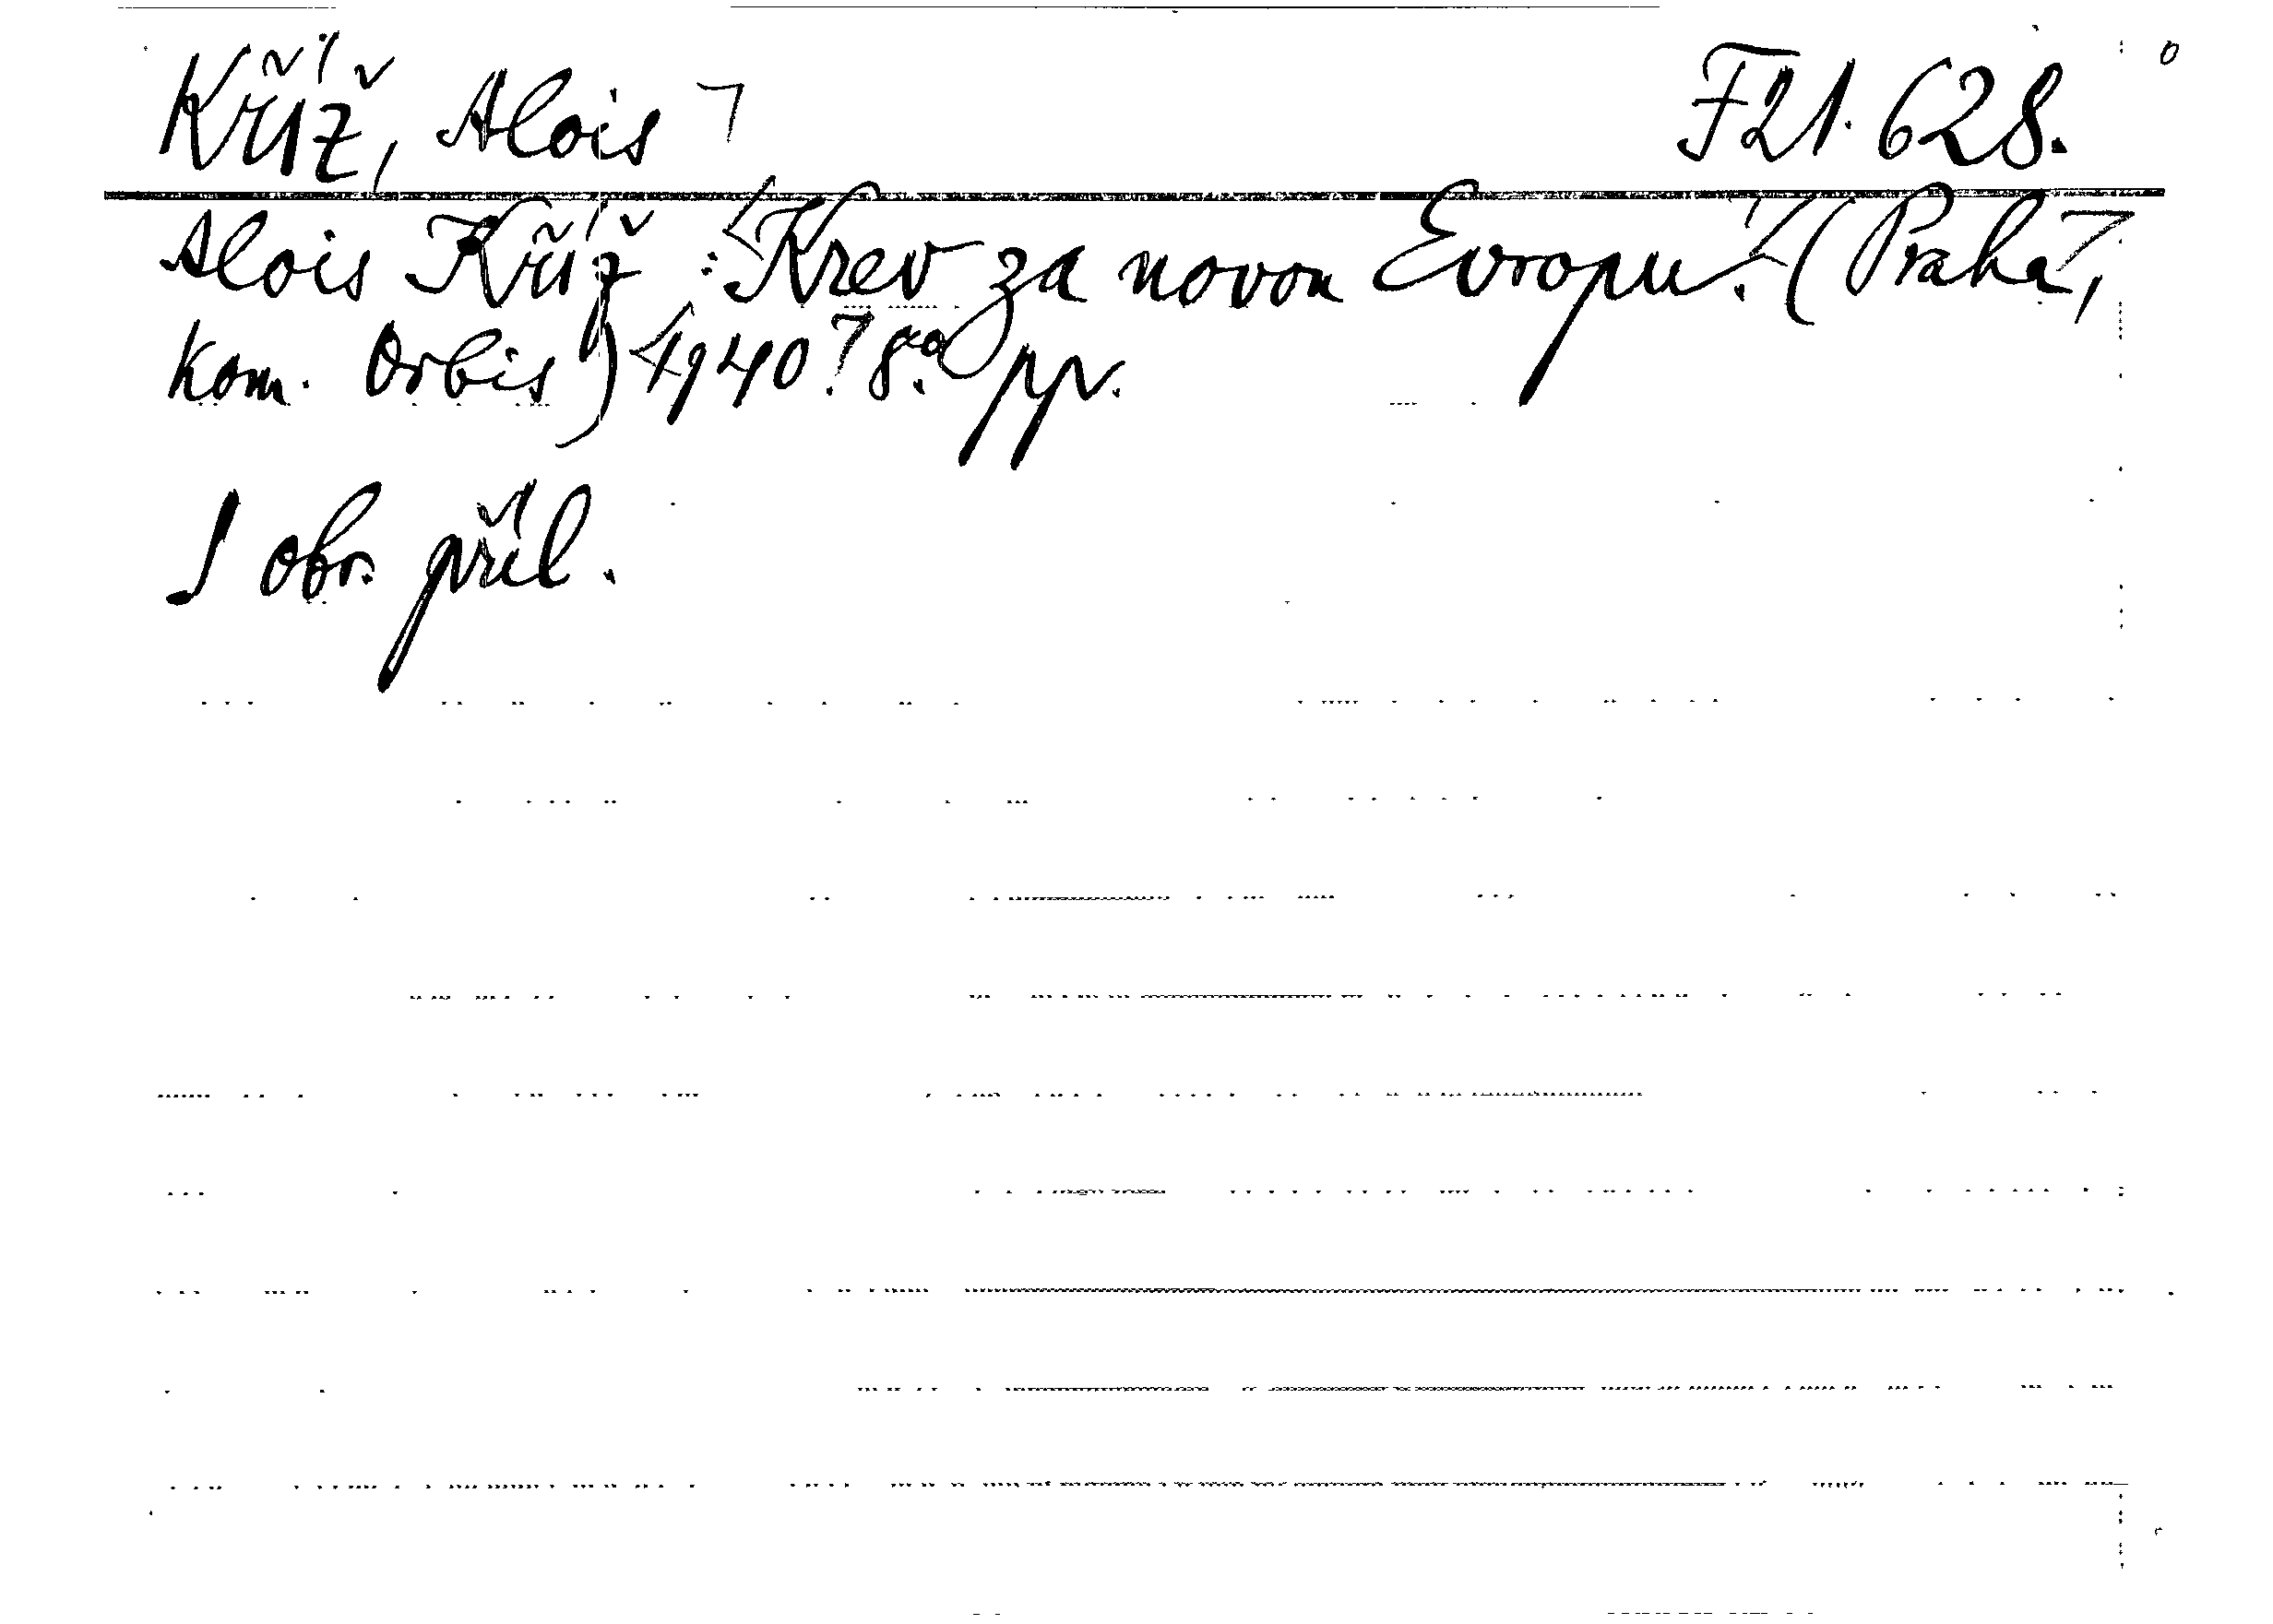 Kříž, Alois F21.628.
Alois Kříž: Krev za novou Evropu. (Praha,
kom. Orbis) 1940. 8° pp.
S obr. příl.